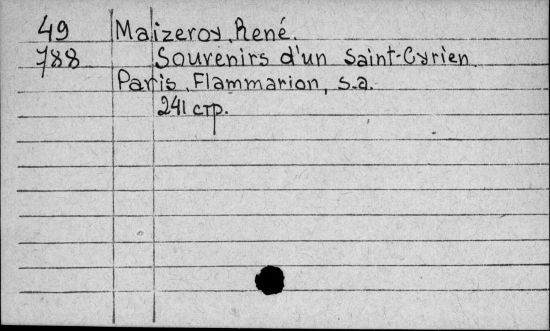 49 Maizeroy, René.
788 Souvenirs d'un Saint-Cyrien.
Paris, Flammarion, s.a.
241 стр.